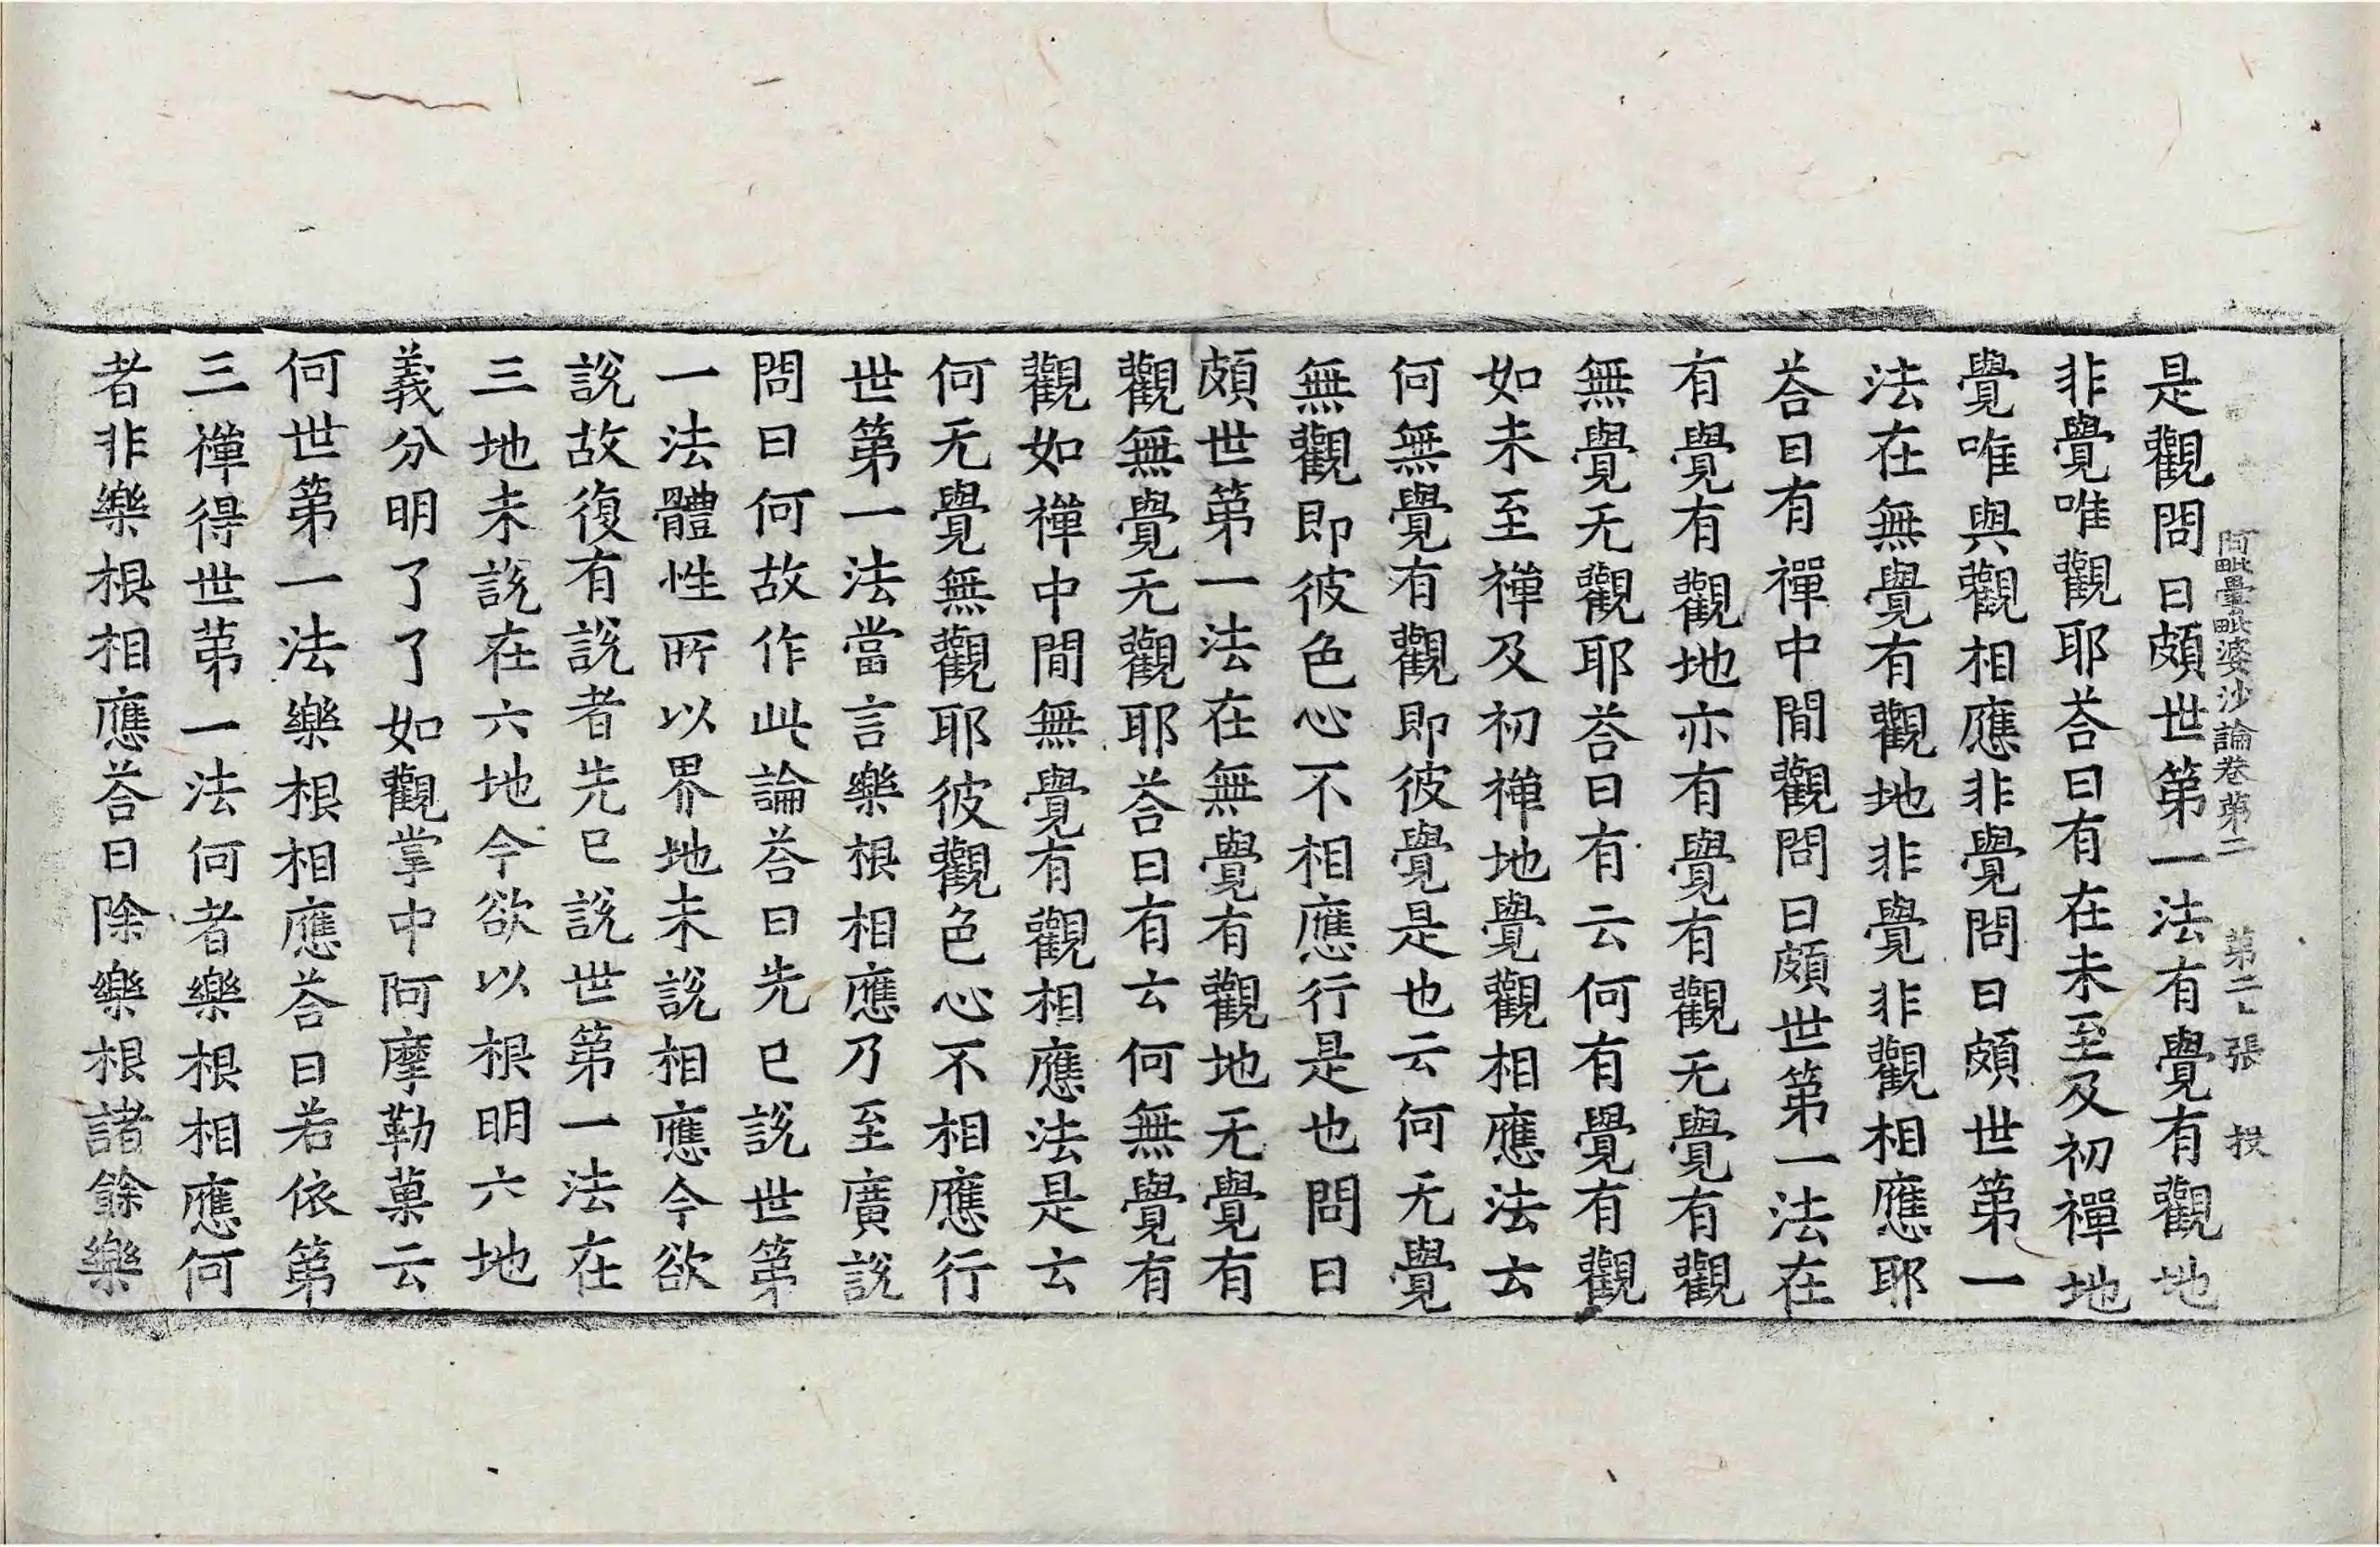 阿毗曇毗婆沙論卷第二　第二　張　投
是觀問曰頗世第一法有覺有觀地
非覺唯觀耶荅曰有在未至及初禪地
覺唯與觀相應非覺問曰頗世第一
法在無覺有觀地非覺非觀相應耶
荅曰有禪中間觀問曰頗世第一法在
有覺有觀地亦有覺有觀无覺有觀
無覺无觀耶荅曰有云何有覺有觀
如未至禪及初禪地覺觀相應法云
何無覺有觀即彼覺是也云何无覺
無觀即彼色心不相應行是也問曰
頗世第一法在無覺有觀地无覺有
觀無覺无觀耶荅曰有云何無覺有
觀如禪中間無覺有觀相應法是云
何无覺無觀耶彼觀色心不相應行
世第一法當言樂根相應乃至廣說
問曰何故作此論荅曰先已說世第
一法體性所以界地未說相應今欲
說故復有說者先已說世第一法在
三地未說在六地今欲以根明六地
義分明了了如觀掌中阿摩勒菓云
何世第一法樂根相應荅曰若依第
三禪得世第一法何者樂根相應何
者非樂根相應荅曰除樂根諸餘樂